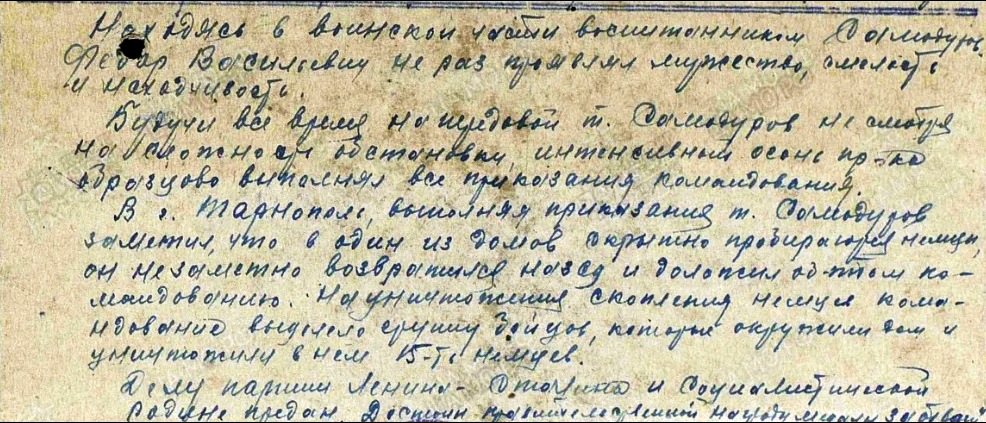 Находясь в воинской части воспитанником Самодуров
Федор Васильевич не раз проявлял мужество, смелость
и находчивость.
Будучи все время на передовой т. Самодуров не смотря
на сложность обстановки, интенсивный огонь пр-ка
образцово выполнял все приказания командования.
В г. Тарнополь, выполняя приказания т. Самодуров
заметил, что в один из домов скрытно пробираются немцы,
он незаметно возвратился назад и доложил об этом ко-
мандованию. На уничтожения скопления немцев кома-
ндование выделело группу бойцов, которые окружили дом и
уничтожили в нем 15-ть немцев.
Делу партии Ленина-Сталина и Социалистической
Родине предан. Достоин правительственной награды медали "За боевые